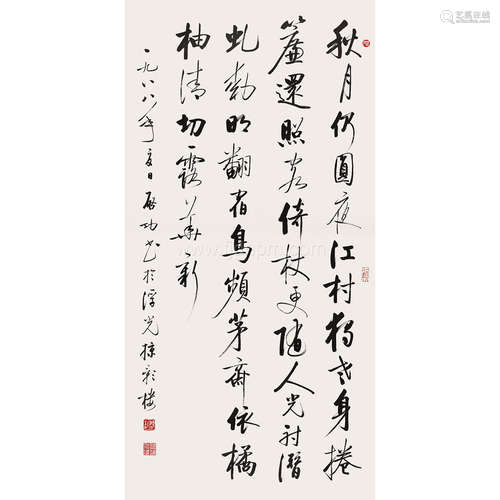 秋月仍圓夜江村獨老身捲
簾還照客倚杖更隨人光射潛
虬動明翻宿鳥頻茅齋依橘
柚清切露華新
一九八八年夏日啟功書於浮光掠影樓